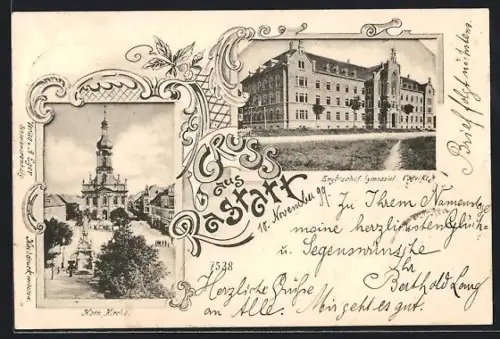 Gruss
aus
Rastatt
Erzbischöfl. Gymnasial Convikt.
Kath. Kirche.
7538
10. November 99.
Zu Ihrem Namens
meine herzlichsten Glück-
u. Segenswünsche
Ihr
Berthold Lang
Herzliche Grüße
an Alle. Mir geht es gut.
Brief folgt nächstens.